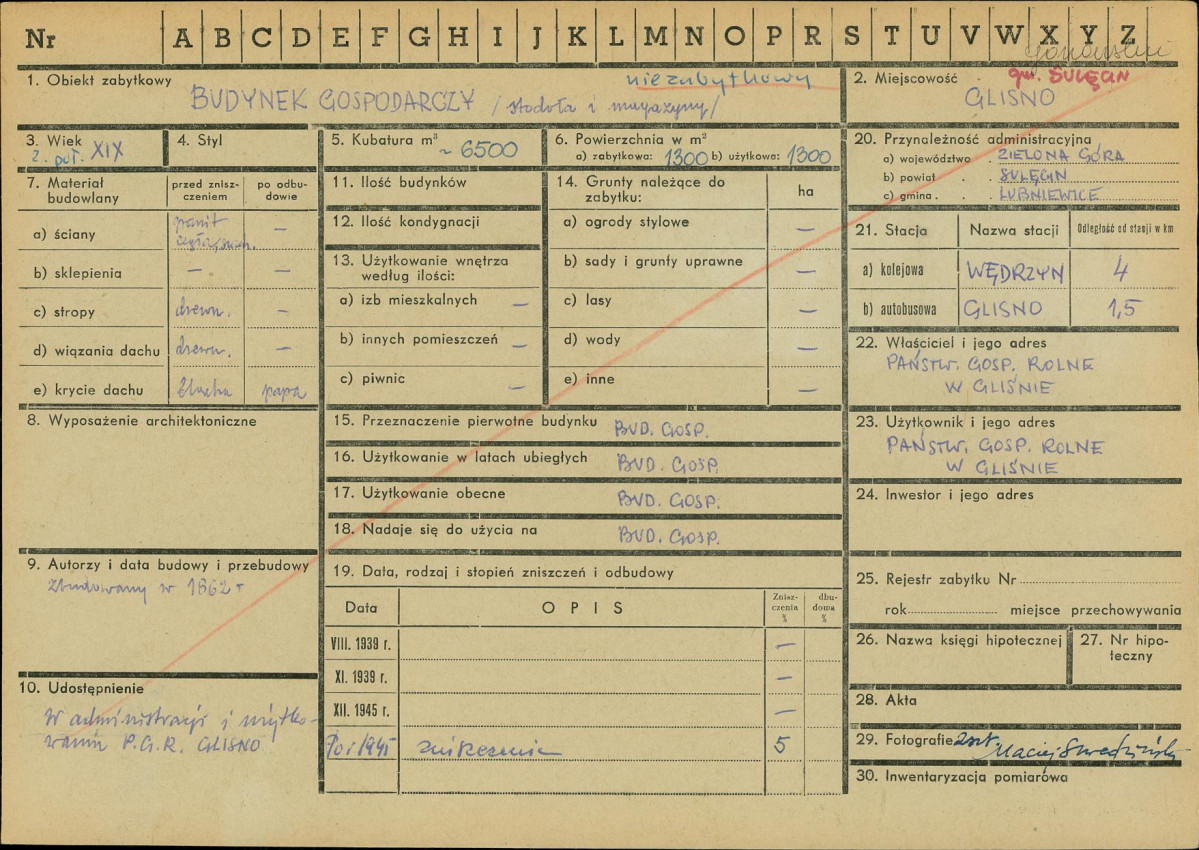 Nr A B C D E F G H I J K L M N O P R S T U V W X Y Z
1. Obiekt zabytkowy
niezabytkowy
BUDYNEK GOSPODARCZY /stodoła i magazyny/
2. Miejscowość
gm. SULĘCIN
GLISNO
3. Wiek
2. poł. XIX
4. Styl
5. Kubatura m³
~ 6500
6. Powierzchnia w m²
a) zabytkowa: 1300 b) użytkowa: 1300
7. Materiał budowlany
przed zniszczeniem
po odbudowie
a) ściany
granit
cegła, —
b) sklepienia — —
c) stropy drewn. —
d) wiązania dachu drewn. —
e) krycie dachu blacha papa
8. Wyposażenie architektoniczne
9. Autorzy i data budowy i przebudowy
Zbudowany w 1862 r
10. Udostępnienie
W administracji i użytko-
waniu P.G.R. GLISNO
11. Ilość budynków
12. Ilość kondygnacji
13. Użytkowanie wnętrza
według ilości:
a) izb mieszkalnych —
b) innych pomieszczeń —
c) piwnic —
14. Grunty należące do
zabytku:
ha
a) ogrody stylowe —
b) sady i grunty uprawne —
c) lasy —
d) wody —
e) inne —
15. Przeznaczenie pierwotne budynku BUD. GOSP.
16. Użytkowanie w latach ubiegłych BUD. GOSP.
17. Użytkowanie obecne BUD. GOSP.
18. Nadaje się do użycia na BUD. GOSP.
19. Data, rodzaj i stopień zniszczeń i odbudowy
Data OPIS Zniszczenia % dbudowa %
VIII. 1939 r. —
XI. 1939 r. —
XII. 1945 r. —
Po r 1945 zniszczenia 5
20. Przynależność administracyjna
a) województwo . ZIELONA GÓRA
b) powiat . . SULĘCIN
c) gmina . . LUBNIEWICE
21. Stacja Nazwa stacji Odległość od stacji w km
a) kolejowa WĘDRZYN 4
b) autobusowa GLISNO 1,5
22. Właściciel i jego adres
PAŃSTW. GOSP. ROLNE
W GLIŚNIE
23. Użytkownik i jego adres
PAŃSTW. GOSP. ROLNE
W GLIŚNIE
24. Inwestor i jego adres
25. Rejestr zabytku Nr
rok miejsce przechowywania
26. Nazwa księgi hipotecznej
27. Nr hipo-
teczny
28. Akta
29. Fotografie 2 szt. Maciej
30. Inwentaryzacja pomiarowa